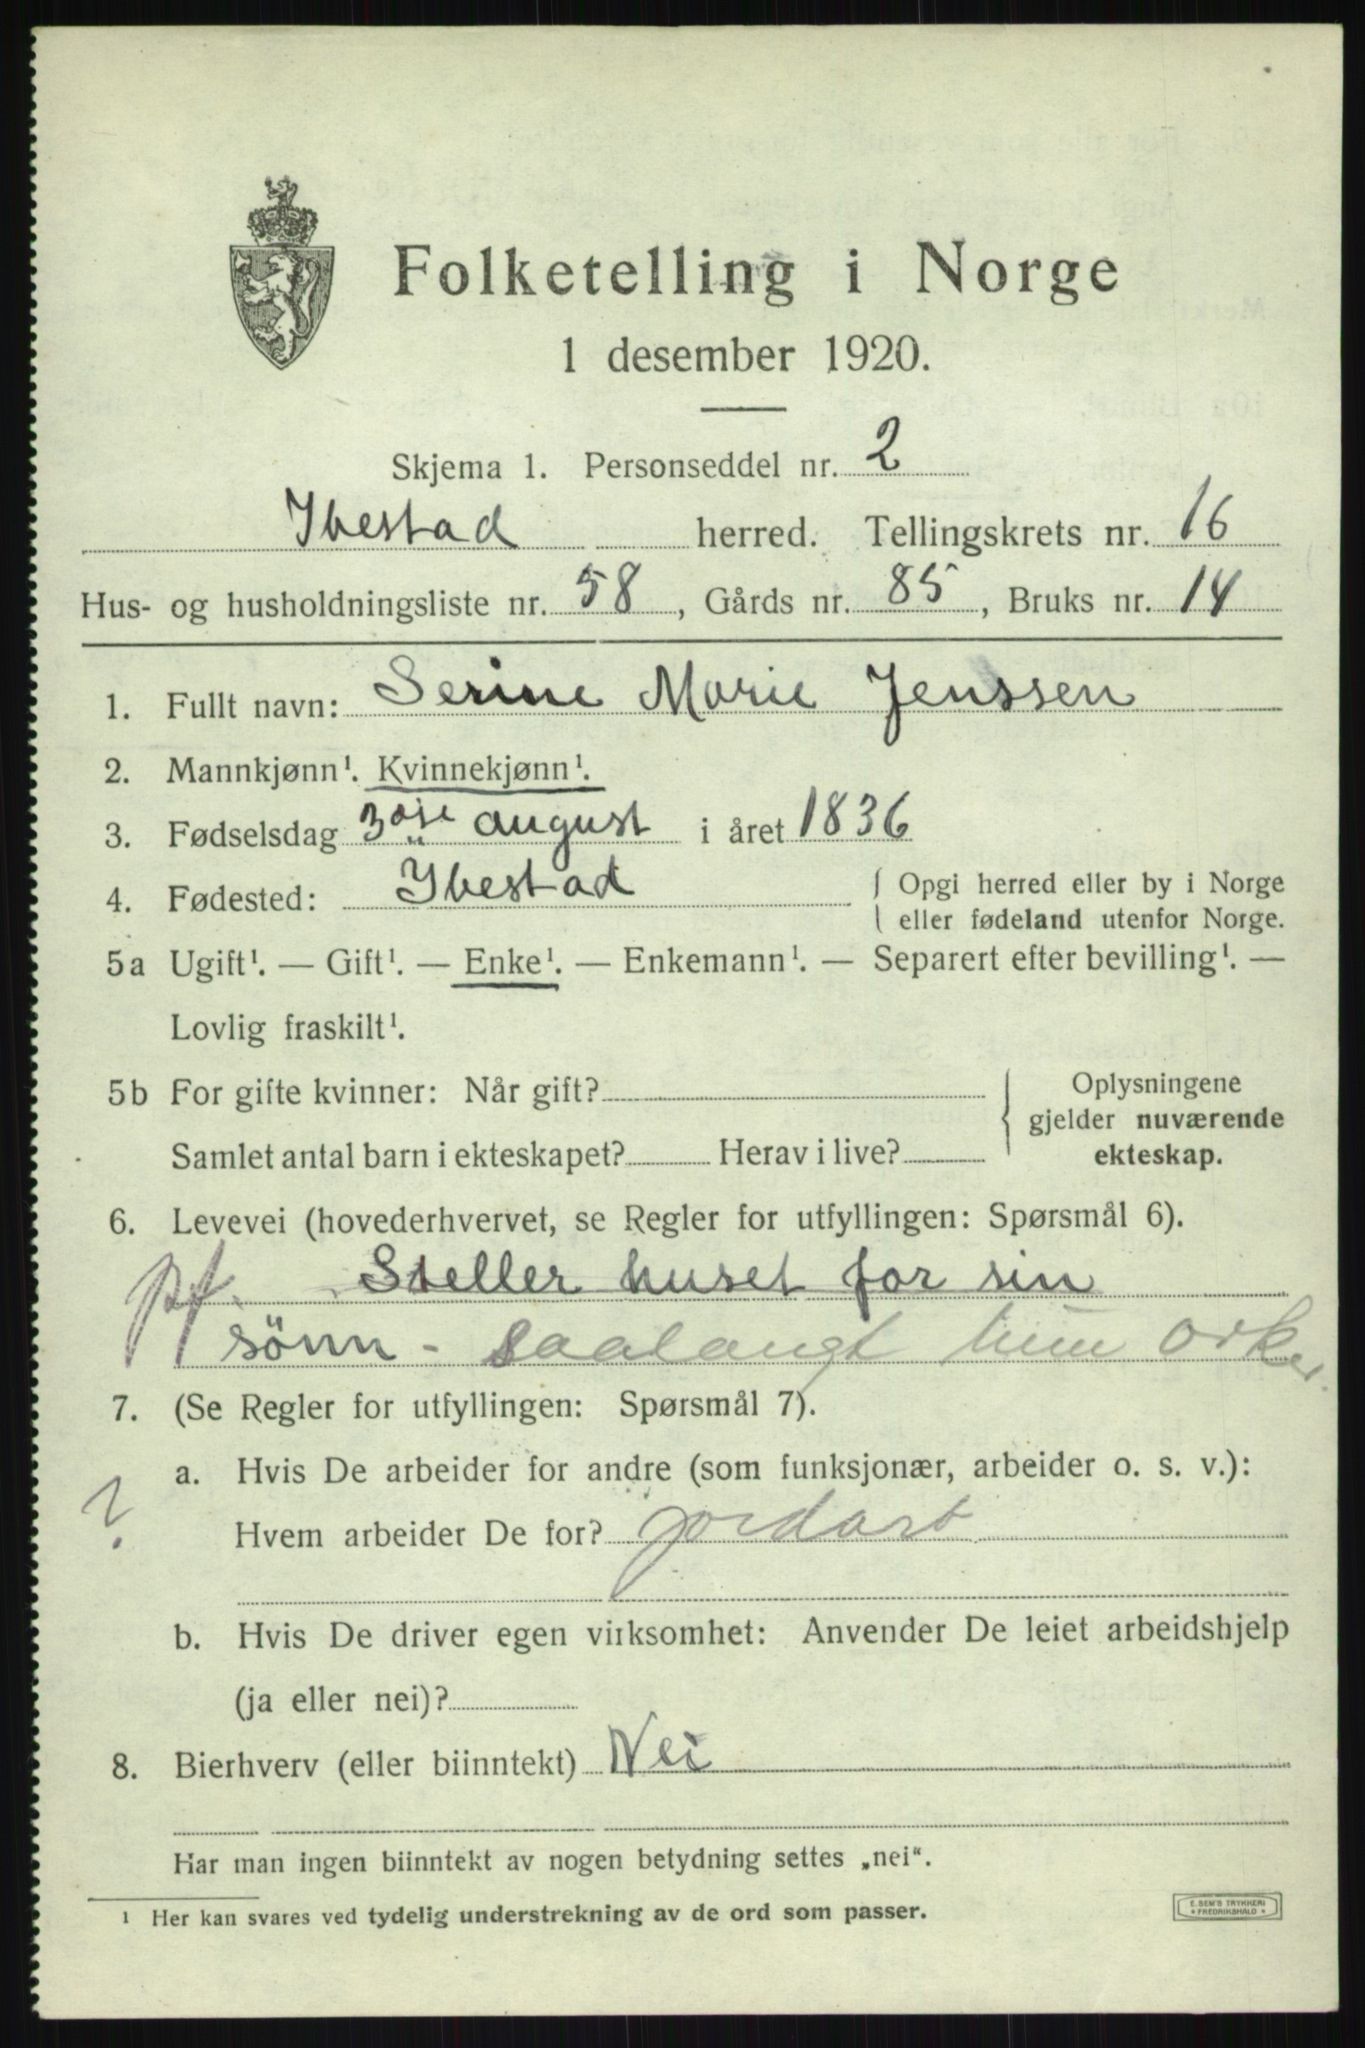 Folketelling i Norge
1 desember 1920.
Skjema 1. Personseddel nr. 2
Ibestad herred. Tellingskrets nr. 16
Hus- og husholdningsliste nr. 58, Gårds nr. 85, Bruks nr. 14
1. Fullt navn: Serine Marie Jenssen
2. Mannkjønn¹. Kvinnekjønn¹.
3. Fødselsdag 30te august i året 1836
4. Fødested: Ibestad { Opgi herred eller by i Norge
eller fødeland utenfor Norge.
5a Ugift¹. — Gift¹. — Enke¹. — Enkemann¹. — Separert efter bevilling¹. —
Lovlig fraskilt¹.
5b For gifte kvinner: Når gift?
Samlet antal barn i ekteskapet? Herav i live?
{ Oplysningene
gjelder nuværende
ekteskap.
6. Levevei (hovederhvervet, se Regler for utfyllingen: Spørsmål 6).
pf. Steller huset for sin
sönn - saalangt hun orker.
7. (Se Regler for utfyllingen: Spørsmål 7).
a. Hvis De arbeider for andre (som funksjonær, arbeider o. s. v.):
? Hvem arbeider De for? jordarb
b. Hvis De driver egen virksomhet: Anvender De leiet arbeidshjelp
(ja eller nei)?
8. Bierhverv (eller biinntekt) Nei
Har man ingen biinntekt av nogen betydning settes „nei“.
¹ Her kan svares ved tydelig understrekning av de ord som passer.
E. SEM'S TRYKKERI
* FREDRIKSHALD *